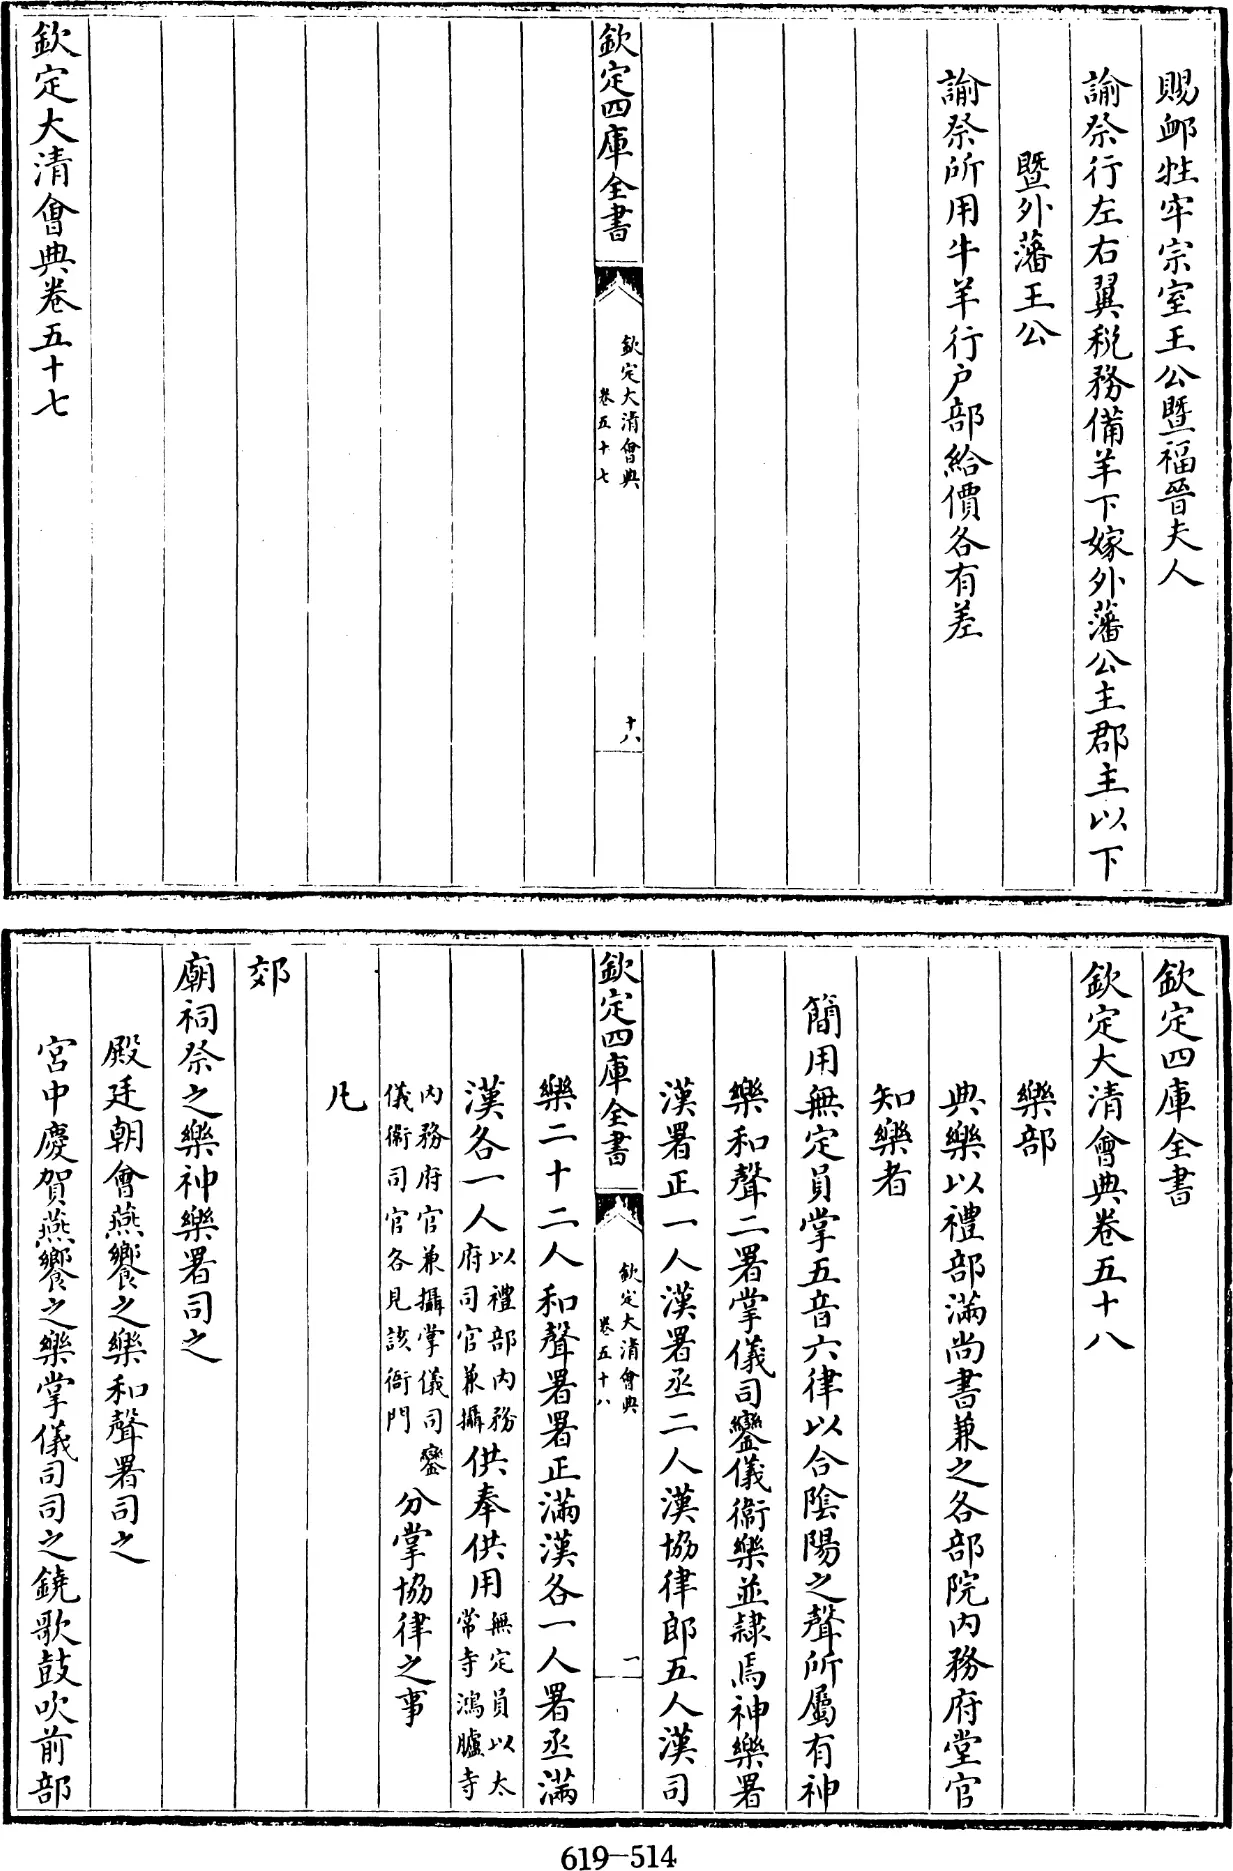 賜䘏牲牢宗室王公暨福晉夫人
諭祭行左右翼税務備羊下嫁外藩公主郡主以下
暨外藩王公
諭祭所用牛羊行户部給價各有差
欽定四庫全書
欽定大清會典
卷五十七
十八
欽定大清會典卷五十七
欽定四庫全書
欽定大清會典卷五十八
樂部
典樂以禮部滿尚書兼之各部院内務府堂官
知樂者
簡用無定員掌五音六律以合陰陽之聲所屬有神
樂和聲二署掌儀司鑾儀衛樂並隷焉神樂署
漢署正一人漢署丞二人漢協律郎五人漢司
欽定四庫全書
欽定大清會典
卷五十八
一
樂二十二人和聲署署正滿漢各一人署丞滿
漢各一人以禮部内務府司官兼攝供奉供用無定員以太常寺鴻臚寺
内務府官兼攝掌儀司鑾儀衛司官各見該衙門分掌協律之事
凡
郊
廟祠祭之樂神樂署司之
殿廷朝會燕饗之樂和聲署司之
宮中慶賀燕饗之樂掌儀司司之鐃歌鼓吹前部
619-514